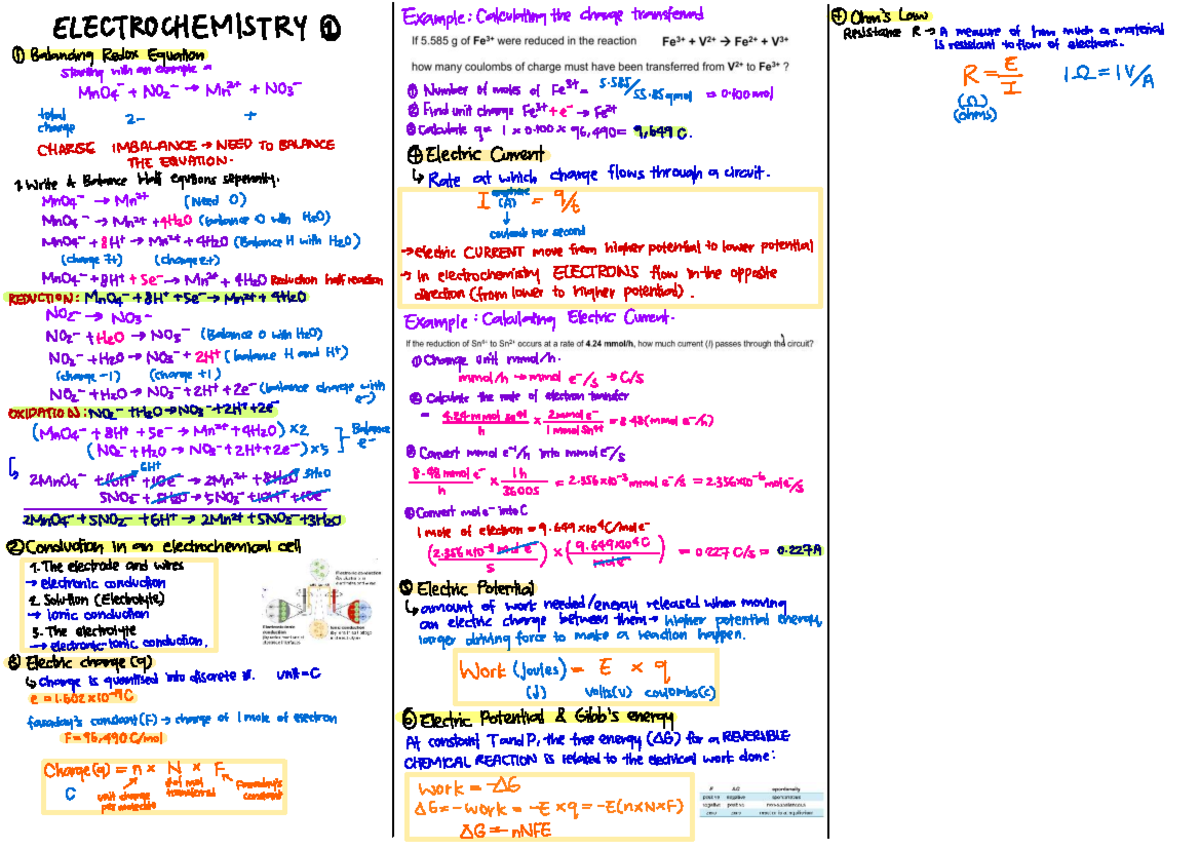 ELECTROCHEMISTRY ①
① Balancing Redox Equation
Starting with an example =
MnO₄⁻ + NO₂⁻ → Mn²⁺ + NO₃⁻
total charge 2- +
CHARGE IMBALANCE → NEED TO BALANCE
THE EQUATION.
1. Write & Balance Half equtions seperatly.
MnO₄⁻ → Mn²⁺ (Need O)
MnO₄⁻ → Mn²⁺ + 4H₂O (balance O with H₂O)
MnO₄⁻ + 8H⁺ → Mn²⁺ + 4H₂O (Balance H with H₂O)
(charge 7+) (charge 2+)
MnO₄⁻ + 8H⁺ + 5e⁻ → Mn²⁺ + 4H₂O Reduction half reaction
REDUCTION: MnO₄⁻ + 8H⁺ + 5e⁻ → Mn²⁺ + 4H₂O
NO₂⁻ → NO₃⁻
NO₂⁻ + H₂O → NO₃⁻ (Balance O with H₂O)
NO₂⁻ + H₂O → NO₃⁻ + 2H⁺ (balance H and H⁺)
(charge -1) (charge +1)
NO₂⁻ + H₂O → NO₃⁻ + 2H⁺ + 2e⁻ (balance charge with e⁻)
OXIDATION: NO₂⁻ + H₂O → NO₃⁻ + 2H⁺ + 2e⁻
(MnO₄⁻ + 8H⁺ + 5e⁻ → Mn²⁺ + 4H₂O) ×2 Balance
(NO₂⁻ + H₂O → NO₃⁻ + 2H⁺ + 2e⁻) ×5 e⁻
6H⁺ 3H₂O
2MnO₄⁻ + 16H⁺ + 10e⁻ → 2Mn²⁺ + 8H₂O
5NO₂⁻ + 5H₂O → 5NO₃⁻ + 10H⁺ + 10e⁻
2MnO₄⁻ + 5NO₂⁻ + 6H⁺ → 2Mn²⁺ + 5NO₃⁻ + 3H₂O
② Conduction in an electrochemical cell
1. The electrode and wires
→ electronic conduction
2. Solution (Electrolyte)
→ Ionic conduction
3. The electrolyte
→ electronic-ionic conduction.
③ Electric charge (q)
↳ Charge is quantised into discrete #. unit = C
e = 1.602 × 10⁻¹⁹C
faraday's constant (F) → charge of 1 mole of electron
F = 96,490 C/mol
Charge (q) = n × N × F
C unit charge per molecule # of mol transferred Faraday's constant
Example: Calculating the charge transferred
If 5.585 g of Fe³⁺ were reduced in the reaction Fe³⁺ + V²⁺ → Fe²⁺ + V³⁺
how many coulombs of charge must have been transferred from V²⁺ to Fe³⁺ ?
① Number of moles of Fe³⁺ = 5.585/55.85gmol = 0.100 mol
② Find unit charge Fe³⁺ + e⁻ → Fe²⁺
③ Calculate q = 1 × 0.100 × 96,490 = 9,649 C.
④ Electric Current
↳ Rate at which charge flows through a circuit.
I (A) = q/t
coulomb per second
→ electric CURRENT move from higher potential to lower potential
→ In electrochemistry ELECTRONS flow in the opposite
direction (from lower to higher potential).
Example: Calculating Electric Current.
If the reduction of Sn⁴⁺ to Sn²⁺ occurs at a rate of 4.24 mmol/h, how much current (I) passes through the circuit?
① Change unit mmol/h.
mmol/h → mmol e⁻/s → C/s
② Calculate the rate of electron transfer
= 4.24 mmol Sn⁴⁺/h × 2 mmol e⁻/1 mmol Sn⁴⁺ = 8.48 (mmol e⁻/h)
③ Convert mmol e⁻/h into mmol e⁻/s
8.48 mmol e⁻/h × 1h/3600s = 2.356×10⁻³ mmol e⁻/s = 2.356×10⁻⁶ mol e⁻/s
④ Convert mol e⁻ into C
1 mole of electron = 9.649 × 10⁴ C/mol e⁻
(2.356 × 10⁻³ mol e⁻/s) × (9.649×10⁴C/mol e⁻) = 0.227 C/s = 0.227A
⑤ Electric Potential
↳ amount of work needed/energy released when moving
an electric charge between them → higher potential energy,
larger driving force to make a reaction happen.
Work (Joules) = E × q
(J) volts(V) coulombs(C)
⑥ Electric Potential & Gibb's energy
At constant T and P, the free energy (ΔG) for a REVERSIBLE
CHEMICAL REACTION is related to the electrical work done:
Work = -ΔG
ΔG = -work = -E × q = -E(n×N×F)
ΔG = -nNFE
E ΔG spontaneity
positive negative spontaneous
negative positive non-spontaneous
zero zero reaction is at equilibrium
⑦ Ohm's Law
Resistance R → A measure of how much a material
is resistant to flow of electrons.
R = E/I 1 Ω = 1 V/A
(Ω)
(ohms)